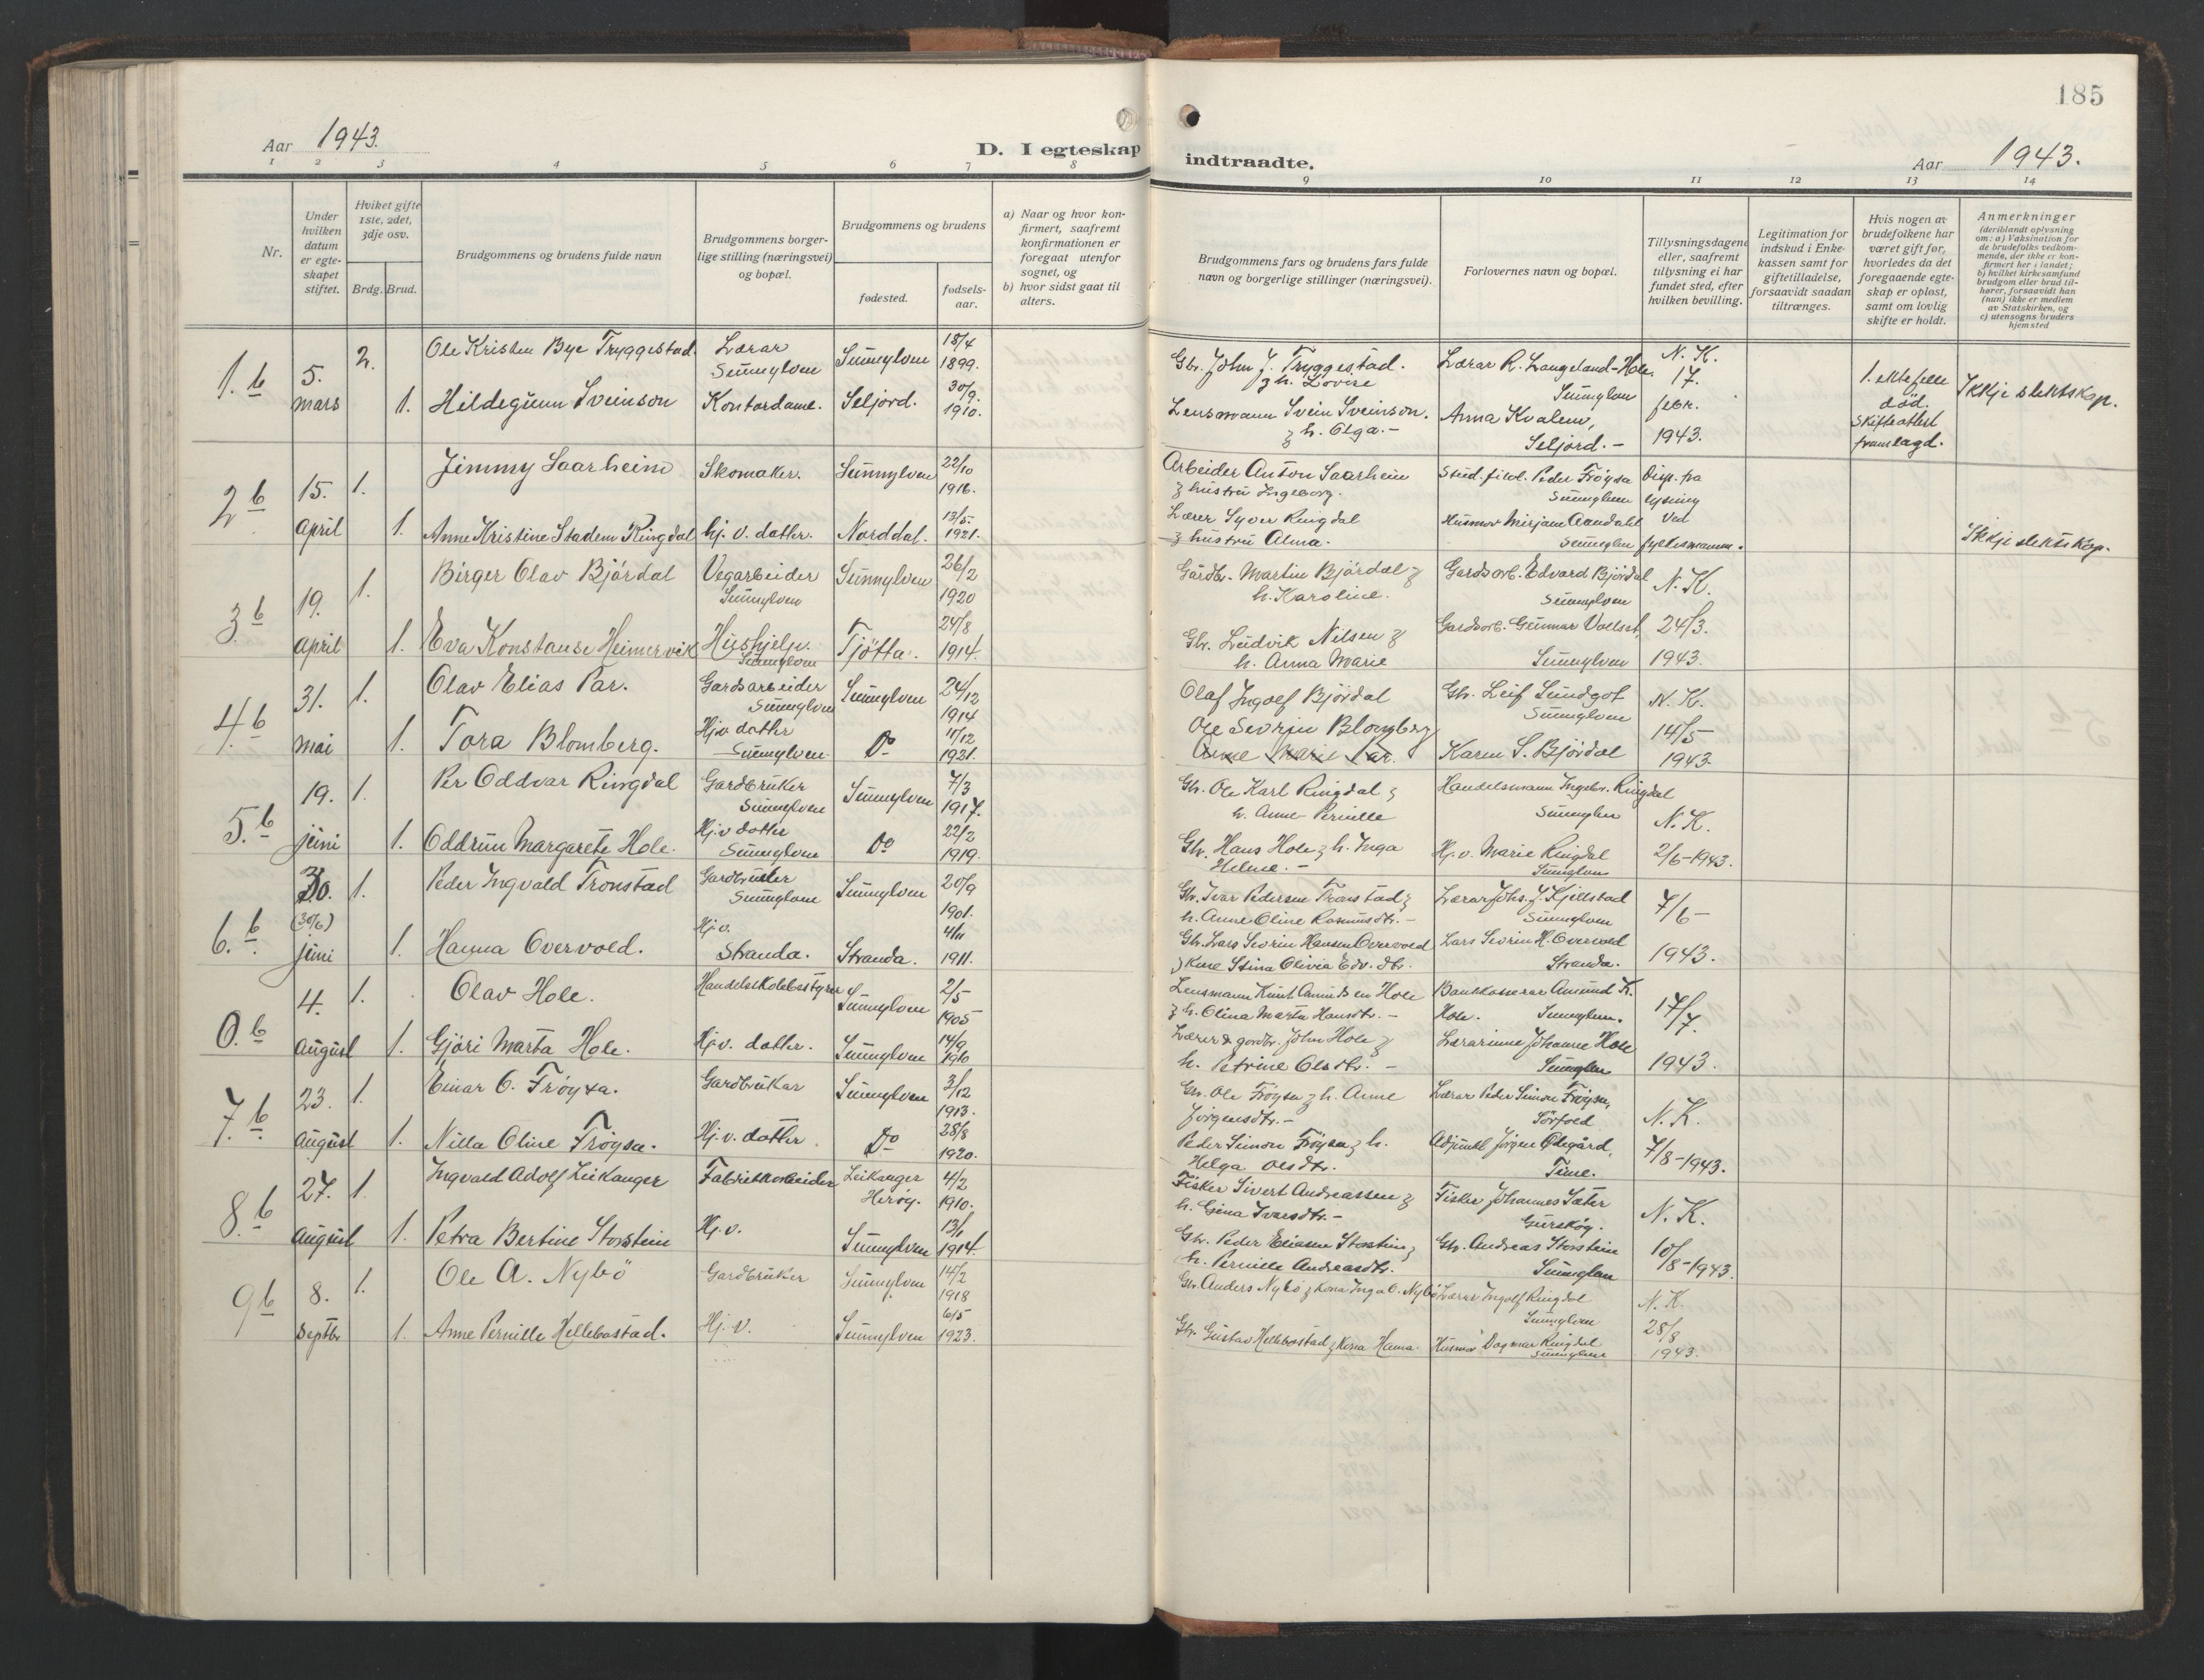 185
Aar 1943.
D. I egteskap indtraadte.
Aar 1943.
1 2 3 4 5 6 7 8 9 10 11 12 13 14
Nr.
Under hvilken datum er egteskapet stiftet.
Hviket gifte 1ste, 2det, 3dje osv.
Brdg. Brud.
Brudgommens og brudens fulde navn
Brudgommens borgerlige stilling (næringsvei) og bopæl.
Brudgommens og brudens
fødested.
fødsels-aar.
a) Naar og hvor konfirmert, saafremt konfirmationen er foregaat utenfor sognet, og
b) hvor sidst gaat til alters.
Brudgommens fars og brudens fars fulde navn og borgerlige stillinger (næringsvei).
Forlovernes navn og bopæl.
Tillysningsdagene eller, saafremt tillysning ei har fundet sted, efter hvilken bevilling.
Legitimation for indskud i Enkekassen samt for giftetilladelse, forsaavidt saadan tiltrænges.
Hvis nogen av brudefolkene har været gift før, hvorledes da det foregaaende egteskap er opløst, samt om lovlig skifte er holdt.
Anmerkninger (deriblandt oplysning om: a) Vaksination for de brudefolks vedkommende, der ikke er konfirmert her i landet; b) hvilket kirkesamfund brudgom eller brud tilhører, forsaavidt han (hun) ikke er medlem av Statskirken, og c) utensogns bruders hjemsted
1. b 5. mars 2. Ole Kristen Bye Tryggestad. Lærar Sunnylven Sunnylven 18/4 1899.
Gbr. John J. Tryggestad. & h. Lovise
Lærar R. Langeland-Hole. Sunnylven
N. K. 17. febr. 1943.
1. ektefelle död. Skifteattest framlagd.
Ikkje slektskap.
1. Hildegunn Sveinson Kontordame. Seljord. 30/9. 1910.
Lensmann Svein Sveinson. & h. Olga. -
Anna Kvalem, Seljord. -
2 b 15. april 1. Jimmy Saarheim Skomaker. Sunnylven 22/10 1916.
Arbeider Anton Saarheim & hustru Ingeborg.
Stud. filol. Peder Fröysa Sunnylven
Disp. fra lysing ved fylkesmann.
1. Anne Kristine Stadem Ringdal hj. v. datter. Norddal. 13/5. 1921.
Lærer Syver Ringdal & hustru Alma.
Husmor Mirjam Aandahl Sunnylven
Ikkje slektskap.
3. b 19. april 1. Birger Olav Bjørdal Vegarbeider Sunnylven Sunnylven 26/2 1920
Gardbr. Martin Bjørdal & h. Karoline.
Gardsarb. Edvard Bjørdal Sunnylven
N. K. 24/3. 1943.
1. Eva Konstanse Heimervik Hushjelp. Sunnylven Tjötta. 24/8 1914.
Gbr. Ludvik Nilsen & h. Anna Marie
Gardsarb. Gunnar Vollset, Sunnylven
4. b 31. mai 1. Olav Elias Par. Gardsarbeider Sunnylven Sunnylven 24/12 1914
Olaf Ingolf Björdal
Gbr. Leif Lundgot Sunnylven
N. K. 14/5 1943.
1. Tora Blomberg. Hj.v. datter Sunnylven. Do 11/12 1921.
Ole Sevrin Blomberg
Anne Marie Par.
Karen S. Björdal
5. b 19. juni 1. Per Oddvar Ringdal Gardbruker Sunnylven Sunnylven 7/3 1917.
Gbr. Ole Karl Ringdal & h. Anne Pernille
Handelsmann Ingebr. Ringdal Sunnylven
N. K. 2/6-1943.
1. Oddrun Margarete Hole. Hj.v datter Sunnylven Do 22/2 1919.
Gbr. Hans Hole & h. Inga Helene. -
Hj. v. Marie Ringdal Sunnylven
6. b. 30. (30/6) juni 1. Peder Ingvald Tronstad Gardbruker Sunnylven Sunnylven 20/9 1901.
Gbr. Ivar Pedersen Tronstad & h. Anne Oline Rasmusdtr. -
Lærar Johs. J. Kjellstad Sunnylven
7/6- 1943.
1. Hanna Overvold. Hj. v. Stranda. Stranda. 4/11 1911.
Gbr. Lars Sevrin Hansen Overvold & kone Stina Olivia Edv. dtr.
Lars Sevrin H. Overvold Stranda.
0. b 4. august 1. Olav Hole. Handelskolebestyrer Sunnylven 2/5 1905
Lensmann Knut Amundsen Hole & h. Olina Marta Hansdtr. -
Bankkasserar Amund K. Hole. Sunnylven.
17/7. 1943.
1. Gjöri Marta Hole. Hj. v. datter. Sunnylven 14/9 1910
Lærer & gardbr. John Hole & h. Petrine Olsdtr. -
Lærarinne Johanne Hole Sunnylven
7. b. 23. august 1. Einar O. Fröysa. Gardbrukar Sunnylven 3/12 1913.
Gbr. Ole Fröysa & h. Anne Jörgensdtr. -
Lærar Peder Simon Fröysa, Sörfold
N. K. 7/8-1943.
1. Nilla Oline Fröysa. Hj. v. datter. Do 28/8 1920.
Peder Simon Fröysa & h. Helga Olsdtr.
Adjunkt Jörgen Ödegård, Time.
8. b 27. august 1. Ingvald Adolf Leikanger Fabrikkarbeider Leikanger Heröy. 4/2 1910.
Fisker Sivert Andreassen & h. Gina Ivarsdtr. -
Fisker Johannes Sæter Gurskøy.
N. K. 10/8-1943.
1. Petra Bertine Storstein Hj. v. Sunnylven 13/1 1914.
Gbr. Peder Eliasen Storstein & h. Pernille Andreasdtr.
Gbr. Andreas Storstein Sunnylven
9 b 8. septbr 1. Ole A. Nybö Gardbruker Sunnylven 14/2 1918
Gbr. Anders Nybö & kona Inga O. Nybö
Lærar Ingolf Ringdal Sunnylven
N. K. 28/8 1943.
1. Anne Pernille Hellebostad. Hj. v. Sunnylven 6/5 1923.
Gbr. Gustav Hellebostad & kona Hanna.
Husmor Dagmar Ringdal Sunnylven